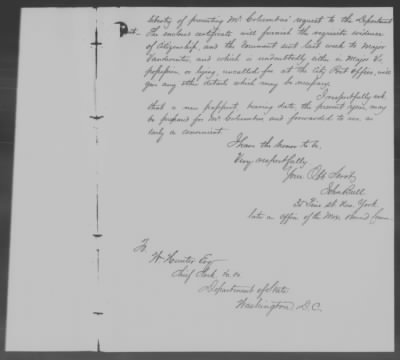 liberty of presenting Mr Columbus' request to the Department
The enclosed certificate will furnish the requisite evidence
of citizenship, and the document sent last week to Major
which is undoubtedly either in Major V's
possession or lying, uncalled for at the City Post Office, will
give any other details which may be necessary.
I respectfully ask
that a new passport bearing date the present again, may
be prepared for Mr Columbus and forwarded to me as
early as convenient.
I have the honor to be.
Very respectfully
Your Obt Servt
John Bull
Pine St New York
late an officer of the Mex.
To
W Hunter Esq
Chief Clerk &c &c
Department of State
Washington D.C.